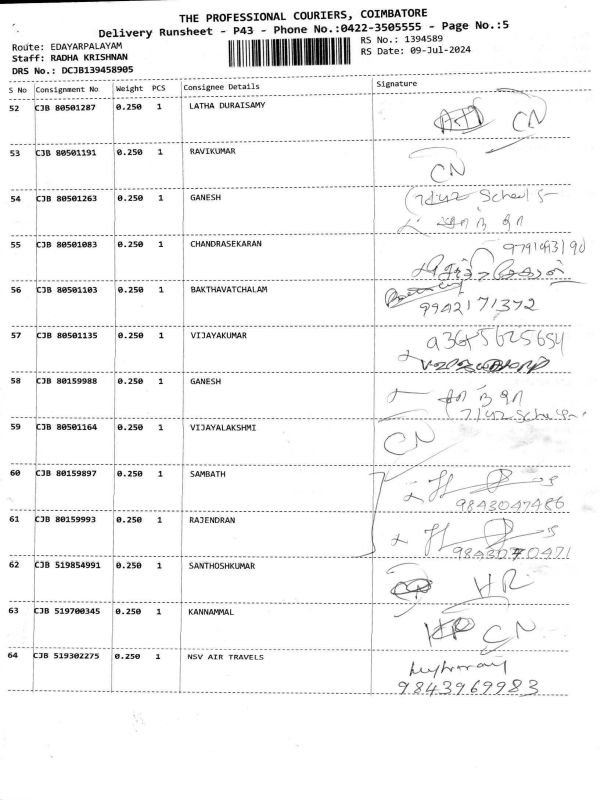 THE PROFESSIONAL COURIERS, COIMBATORE
Delivery Runsheet - P43 - Phone No.:0422-3505555 - Page No.:5
Route: EDAYARPALAYAM
RS No.: 1394589
Staff: RADHA KRISHNAN
RS Date: 09-Jul-2024
DRS No.: DCJB139458905
S No Consignment No Weight PCS Consignee Details Signature
52 CJB 80501287 0.250 1 LATHA DURAISAMY CN
53 CJB 80501191 0.250 1 RAVIKUMAR CN
54 CJB 80501263 0.250 1 GANESH
55 CJB 80501083 0.250 1 CHANDRASEKARAN
56 CJB 80501103 0.250 1 BAKTHAVATCHALAM
9942171372
57 CJB 80501135 0.250 1 VIJAYAKUMAR
58 CJB 80159988 0.250 1 GANESH
59 CJB 80501164 0.250 1 VIJAYALAKSHMI CN
60 CJB 80159897 0.250 1 SAMBATH
9843047486
61 CJB 80159993 0.250 1 RAJENDRAN
62 CJB 519854991 0.250 1 SANTHOSHKUMAR
63 CJB 519700345 0.250 1 KANNAMMAL CN
64 CJB 519302275 0.250 1 NSV AIR TRAVELS
9843969983